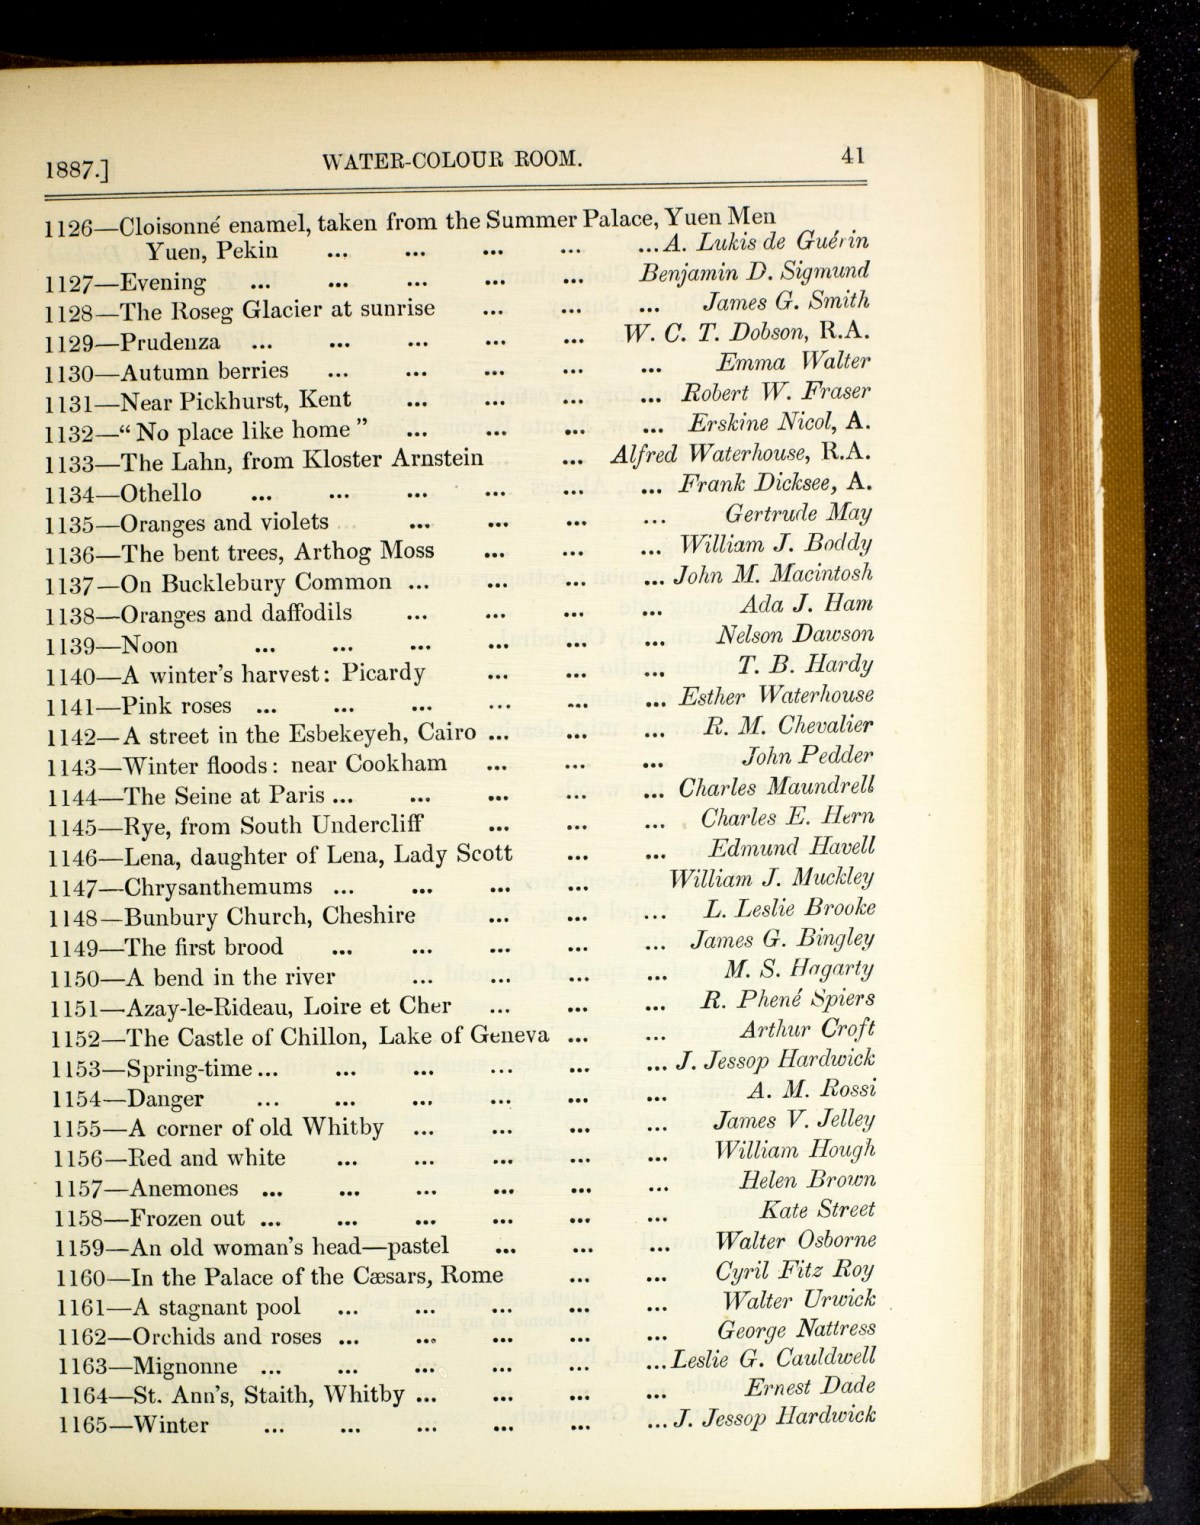 1887.] WATER-COLOUR ROOM. 41
1126—Cloisonné enamel, taken from the Summer Palace, Yuen Men
Yuen, Pekin ... ... ... ... A. Lukis de Guérin
1127—Evening ... ... ... ... ... Benjamin D. Sigmund
1128—The Roseg Glacier at sunrise ... ... ... James G. Smith
1129—Prudenza ... ... ... ... ... W. C. T. Dobson, R.A.
1130—Autumn berries ... ... ... ... ... Emma Walter
1131—Near Pickhurst, Kent ... ... ... ... Robert W. Fraser
1132—“No place like home” ... ... ... ... Erskine Nicol, A.
1133—The Lahn, from Kloster Arnstein ... Alfred Waterhouse, R.A.
1134—Othello ... ... ... ... ... ... Frank Dicksee, A.
1135—Oranges and violets ... ... ... ... ... Gertrude May
1136—The bent trees, Arthog Moss ... ... ... William J. Boddy
1137—On Bucklebury Common ... ... ... ... John M. Macintosh
1138—Oranges and daffodils ... ... ... ... Ada J. Ham
1139—Noon ... ... ... ... ... ... Nelson Dawson
1140—A winter's harvest: Picardy ... ... ... T. B. Hardy
1141—Pink roses ... ... ... ... ... ... Esther Waterhouse
1142—A street in the Esbekeyeh, Cairo ... ... ... R. M. Chevalier
1143—Winter floods: near Cookham ... ... ... John Pedder
1144—The Seine at Paris ... ... ... ... ... Charles Maundrell
1145—Rye, from South Undercliff ... ... ... Charles E. Hern
1146—Lena, daughter of Lena, Lady Scott ... ... Edmund Havell
1147—Chrysanthemums ... ... ... ... William J. Muckley
1148—Bunbury Church, Cheshire ... ... ... L. Leslie Brooke
1149—The first brood ... ... ... ... ... James G. Bingley
1150—A bend in the river ... ... ... ... M. S. Hagarty
1151—Azay-le-Rideau, Loire et Cher ... ... ... R. Phené Spiers
1152—The Castle of Chillon, Lake of Geneva ... ... Arthur Croft
1153—Spring-time ... ... ... ... ... ... J. Jessop Hardwick
1154—Danger ... ... ... ... ... ... A. M. Rossi
1155—A corner of old Whitby ... ... ... ... James V. Jelley
1156—Red and white ... ... ... ... ... William Hough
1157—Anemones ... ... ... ... ... ... Helen Brown
1158—Frozen out ... ... ... ... ... ... Kate Street
1159—An old woman's head—pastel ... ... ... Walter Osborne
1160—In the Palace of the Cæsars, Rome ... ... Cyril Fitz Roy
1161—A stagnant pool ... ... ... ... ... Walter Urwick
1162—Orchids and roses ... ... ... ... ... George Nattress
1163—Mignonne ... ... ... ... ... ... Leslie G. Cauldwell
1164—St. Ann's, Staith, Whitby ... ... ... ... Ernest Dade
1165—Winter ... ... ... ... ... ... J. Jessop Hardwick